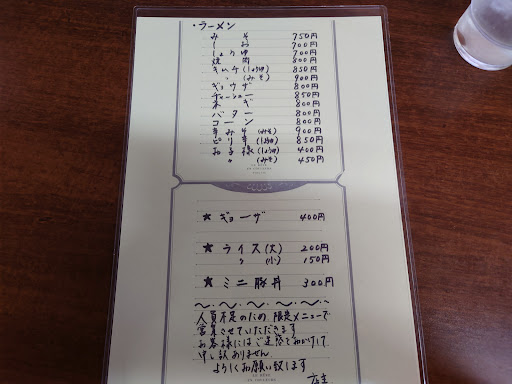 ・ラーメン
みそ 750円
しお 700円
しょうゆ 700円
焼肉 800円
キムチ(しょうゆ) 850円
〃 (みそ) 900円
ギョウザ 800円
チャーシュー 850円
ネギ 800円
バター 800円
コーン 800円
辛みそ(みそ) 900円
ピリ辛(しょうゆ) 850円
お子様(しょうゆ) 400円
〃 (みそ) 450円
★ ギョーザ 400円
★ ライス(大) 200円
〃 (小) 150円
★ ミニ豚丼 300円
人員不足のため 限定メニューで
営業させていただきます
お客様にはご迷惑をおかけして
申し訳ありません
よろしくお願い致します
店主